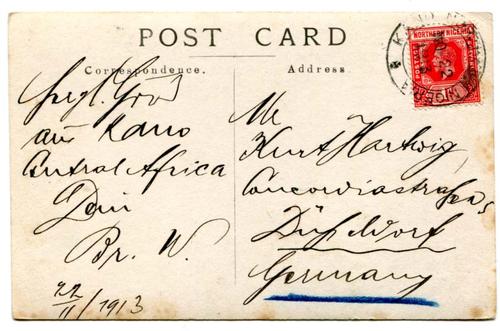 POST CARD
Correspondence.
Address
NORTHERN NIGERIA
POSTAGE
Herzl. Gruß
aus Kano
Central Africa
Dein
Br. W.
22/11/1913
Mr
Kurt Hartwig
Concordiastraße
Düsseldorf
Germany